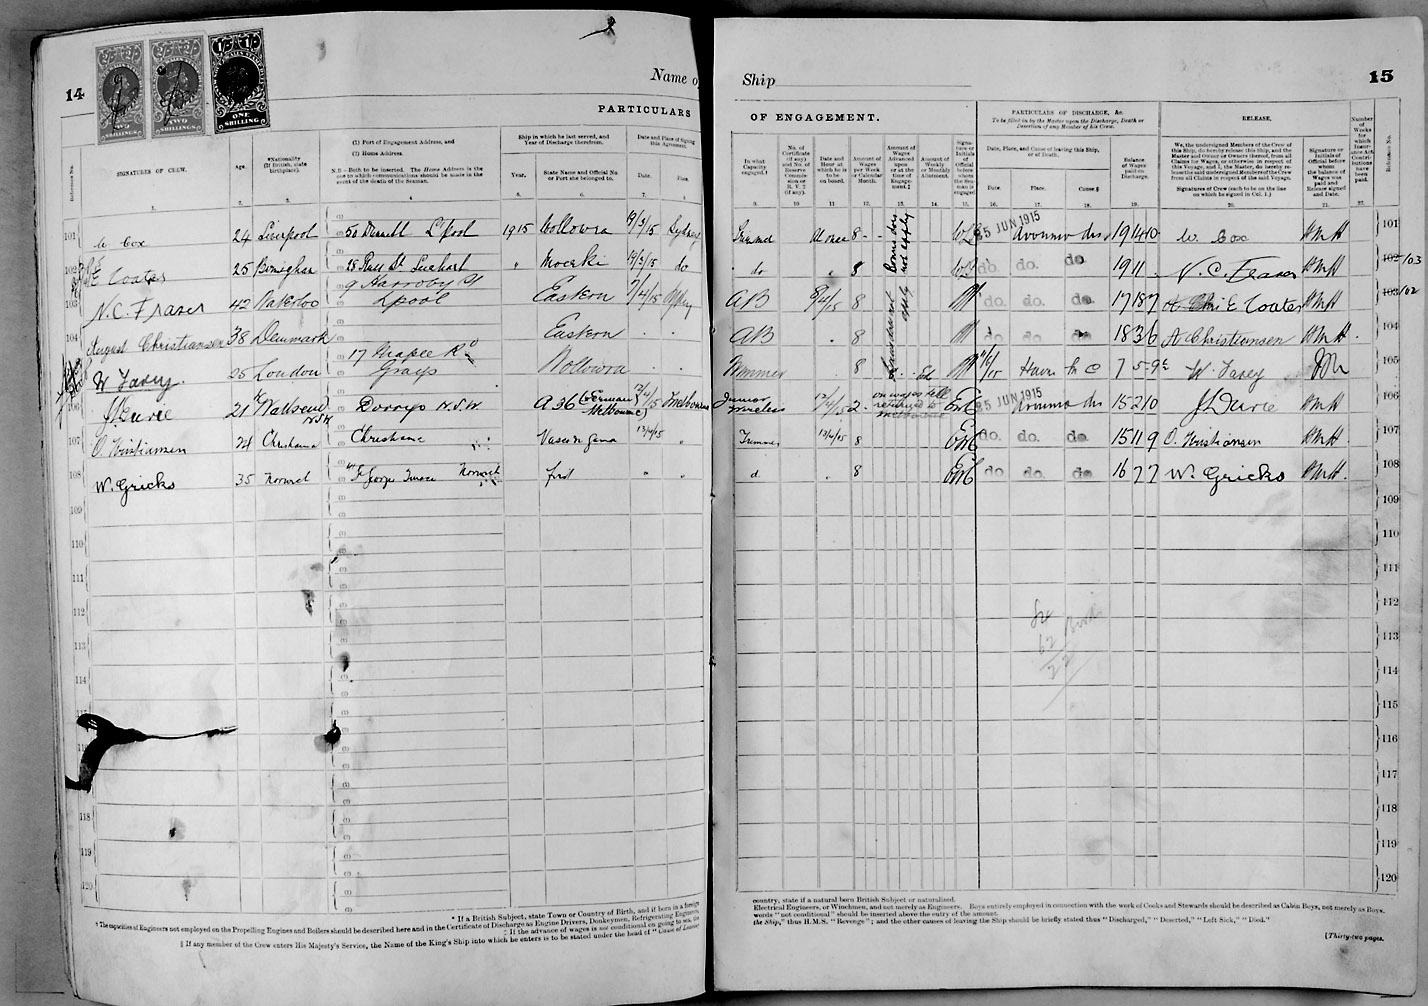 14
TWO SHILLINGS
TWO SHILLINGS
ONE SHILLING
Name o
PARTICULARS
Reference No.
SIGNATURES OF CREW.
Age.
*Nationality (If British, state birthplace).
(1) Port of Engagement Address, and
(2) Home Address.
N.B.—Both to be inserted. The Home Address is the one to which communications should be made in the event of the death of the Seaman.
Ship in which he last served, and Year of Discharge therefrom.
Year.
State Name and Official No or Port she belonged to.
Date and Place of Signing this Agreement.
Date.
Place.
1. 2. 3. 4. 5. 6. 7. 8.
101 W Cox 24 Liverpool 50 L'pool 1915 Wollowra 19/3/15 Sydney
102 E Coates 25 28 St " Moeraki 19/3/15 do
103 N.C. Fraser 42 Waterloo 9 Harroby St Lpool Eastern 7/4/15 Sydney
104 August Christiansen 38 Denmark Eastern
105 W Favey. 25 London 17 Maple Rd Grays Wollowra
106 21 N.S.W. A36 (German) Melbourne 12/4/15 Melbourne
107 O. Kristiansen 24 Christiania Christiania Vasco da Gama 13/4/15 "
108 W. Gricks 35 Norwich St Georges Terrace Norwich first " "
109
110
111
112
113
114
118
119
120
* If a British Subject, state Town or Country of Birth, and if born in a foreign
† The capacities of Engineers not employed on the Propelling Engines and Boilers should be described here and in the Certificate of Discharge as Engine Drivers, Donkeymen, Refrigerating Engineers,
‡ If the advance of wages is not conditional on going to sea, the
§ If any member of the Crew enters His Majesty's Service, the Name of the King's Ship into which he enters is to be stated under the head of "Cause of Leaving
Ship
15
OF ENGAGEMENT.
PARTICULARS OF DISCHARGE, &c.
To be filled in by the Master upon the Discharge, Death or Desertion of any Member of his Crew.
RELEASE.
In what Capacity engaged.†
No. of Certificate (if any) and No. of Reserve Commission or R.V.2 (if any).
Date and Hour at which he is to be on board.
Amount of Wages per Week or Calendar Month.
Amount of Wages Advanced upon or at the time of Engagement.‡
Amount of Weekly or Monthly Allotment.
Signature or Initials of Official before whom the Seaman is engaged.
Date, Place, and Cause of leaving this Ship, or of Death.
Date.
Place.
Cause §
Balance of Wages paid on Discharge.
We, the undersigned Members of the Crew of this Ship, do hereby release this Ship, and the Master and Owner or Owners thereof, from all Claims for Wages, or otherwise in respect of this Voyage, and I, the Master, do hereby release the undersigned Members of the Crew from all Claims in respect of the said Voyage.
Signatures of Crew (each to be on the line on which he signed in Col. 1.)
Signature or Initials of Official before whom the balance of Wages was paid and Release signed and Dated.
Number of Weeks for which Insurance Act Contributions have been paid.
Reference No.
9. 10 11 12. 13. 14. 15. 16. 17. 18. 19. 20. 21. 22.
Bonus does not apply
At once 8 25 JUN 1915 dis 19 14 10 W. Cox HMH 101
do " 8 do. do. do 19 11 N. C. Fraser HMH 102 103
AB 8/4/15 8 do. do. do. 17 18 7 E Coates HMH 103 102
AB " 8 do do do. 18 3 6 A Christiansen HMH 104
Trimmer 8 Havre 7 5 9 W Favey 105
Junior Wireless 12/4/15 2 on wages till returned to Melbourne 25 JUN 1915 dis 15 2 10 HMH 106
Trimmer 13/4/15 8 do. do. do. 15 11 9 O. Kristiansen HMH 107
d. " 8 do do. do 16 7 7 W. Gricks HMH. 108
109
110
111
112
113
114
115
116
117
118
119
120
country, state if a natural born British Subject or naturalised.
Electrical Engineers, or Winchmen, and not merely as Engineers. Boys entirely employed in connection with the work of Cooks and Stewards should be described as Cabin Boys, not merely as Boys.
words "not conditional" should be inserted above the entry of the amount.
the Ship," thus H.M.S. "Revenge"; and the other causes of leaving the Ship should be briefly stated thus "Discharged," "Deserted," "Left Sick," "Died."
[Thirty-two pages.